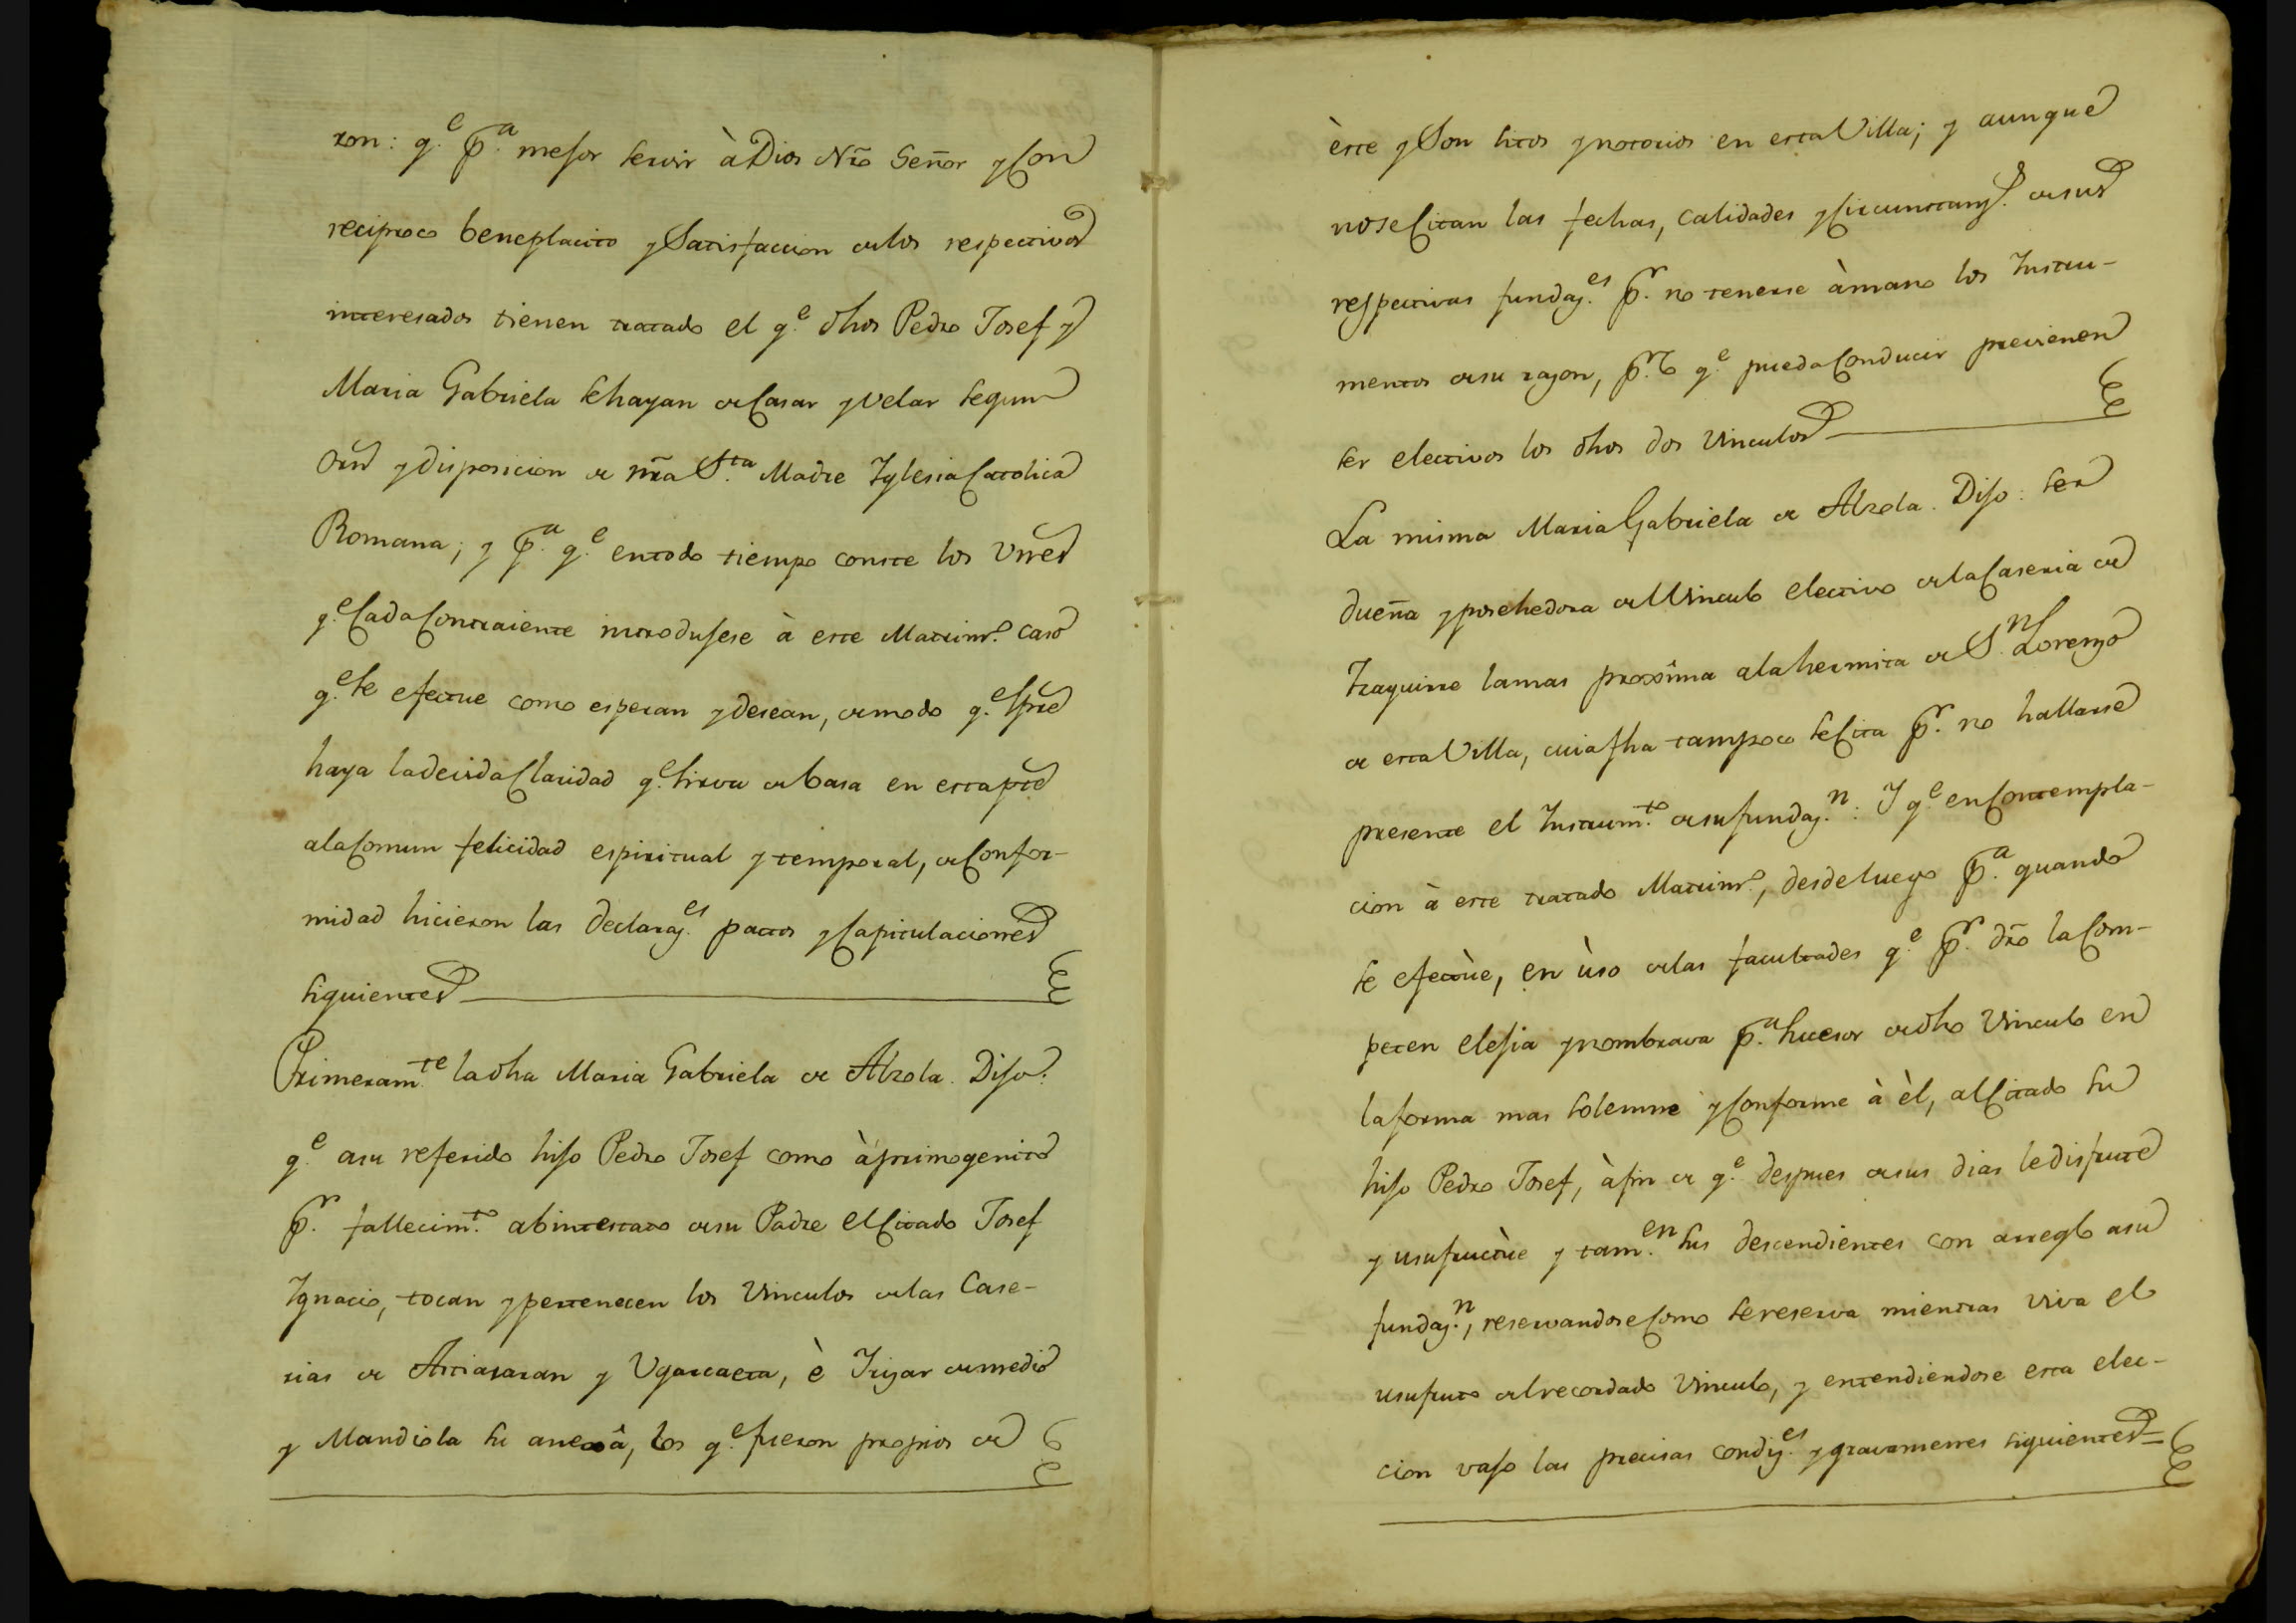 ron: q.e p.a mejor servir à Dios Nro Señor y con
reciproco beneplacito y Satisfaccion de los respectivos
interesados tienen tratado el q.e dhos Pedro Josef y
Maria Gabriela se hayan de Casar y velar segun
orn y disposicion de nra S.ta Madre Yglesia Catolica
Romana; y p.a q.e en todo tiempo conste los vnes
q.e Cada Contraiente introdujese à este Matrim.o caso
q.e se efectue como esperan y desean, de modo q.e spre
haya la devida Claridad q.e sirva de basa en esta pte
a la Comun felicidad espiritual y temporal, de Confor-
midad hicieron las declaraz.es pactos y Capitulaciones
siguientes
Primeram.te la dha Maria Gabriela de Alzola. Dijo:
q.e a su referido hijo Pedro Josef como à primogenito
p.r fallecim.to abintestato de su Padre el Citado Josef
Ygnacio, tocan y pertenecen los Vinculos de las Case-
rias de Arriasaran y Ugarcaeta, è Yrijar de medio
y Mandiola su anexâ, los q.e fueron propios de
èste y Son sitos y notorios en esta Villa; y aunque
no se Citan las fechas, calidades y Circunstanz.s de sus
respectivas fundaz.es p.r no tenerse à mano los Ynstru-
mentos de su razon, p.r lo q.e pueda Conducir previenen
ser electivos los dhos dos Vinculos
La misma Maria Gabriela de Alzola. Dijo: ser
dueña y posehedora del Vinculo electivo de la Caseria de
Yraguirre la mas proxîma a la hermita de S.n Lorenzo
de esta Villa, cuia fha tampoco se Cita p.r no hallarse
presente el Ynstrum.to de su fundaz.n: Y q.e en Contempla-
cion à este tratado Matrim.o, desde luego p.a quando
se efectùe, en ùso de las facultades q.e p.r dro la Com-
peten elejia y nombrava p.a sucesor de dho Vinculo en
la forma mas solemne y Conforme à èl, al Citado su
hijo Pedro Josef, à fin de q.e despues de sus dias le disfrute
y usufructùe y tam.en sus descendientes con arreglo a su
fundaz.n, reservandose Como se reserva mientras viva el
usufruto del recordado Vinculo, y entendiendose esta elec-
cion vajo las precisas condiz.es y gravamenes siguientes